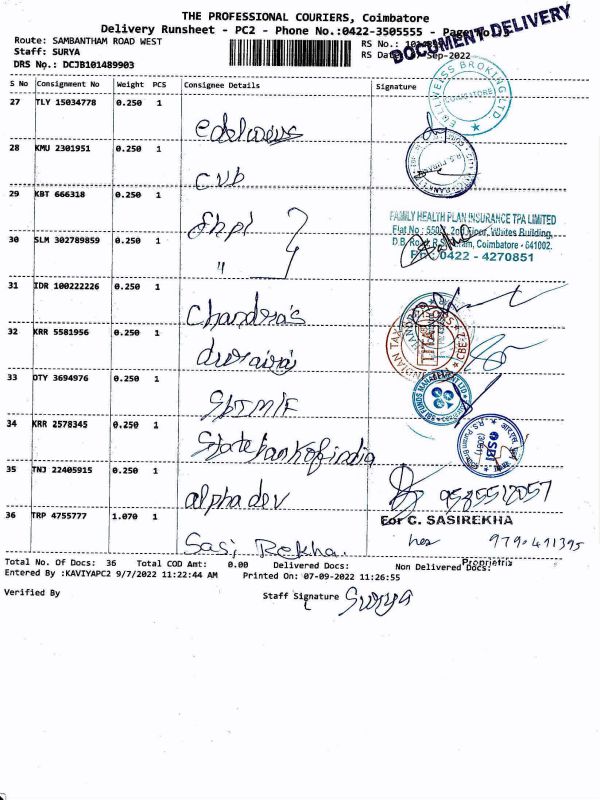 THE PROFESSIONAL COURIERS, Coimbatore
Delivery Runsheet - PC2 - Phone No.:0422-3505555 - Page No
DOCUMENT DELIVERY
Route: SAMBANTHAM ROAD WEST
RS No.:
Staff: SURYA
RS Date: Sep-2022
DRS No.: DCJB101489903
S No Consignment No Weight PCS Consignee Details Signature
27 TLY 15034778 0.250 1
edelweiss
28 KMU 2301951 0.250 1
CUB
29 KBT 666318 0.250 1
fhpl
30 SLM 302789859 0.250 1
"
FAMILY HEALTH PLAN INSURANCE TPA LIMITED
Whites Building,
Coimbatore - 641002.
0422 - 4270851
31 IDR 100222226 0.250 1
Chandra's
32 KRR 5581956 0.250 1
durairaj
33 OTY 3694976 0.250 1
SBIM/F
SBI FUNDS MANAGEMENT LTD
34 KRR 2578345 0.250 1
State bank of india
SBI
35 TNJ 22405915 0.250 1
alpha dev
36 TRP 4755777 1.070 1
For C. SASIREKHA
Sasi Rekha.
9790491395
Proprietrix
Total No. Of Docs: 36 Total COD Amt: 0.00 Delivered Docs: Non Delivered Docs:
Entered By :KAVIYAPC2 9/7/2022 11:22:44 AM Printed On: 07-09-2022 11:26:55
Verified By Staff Signature Surya